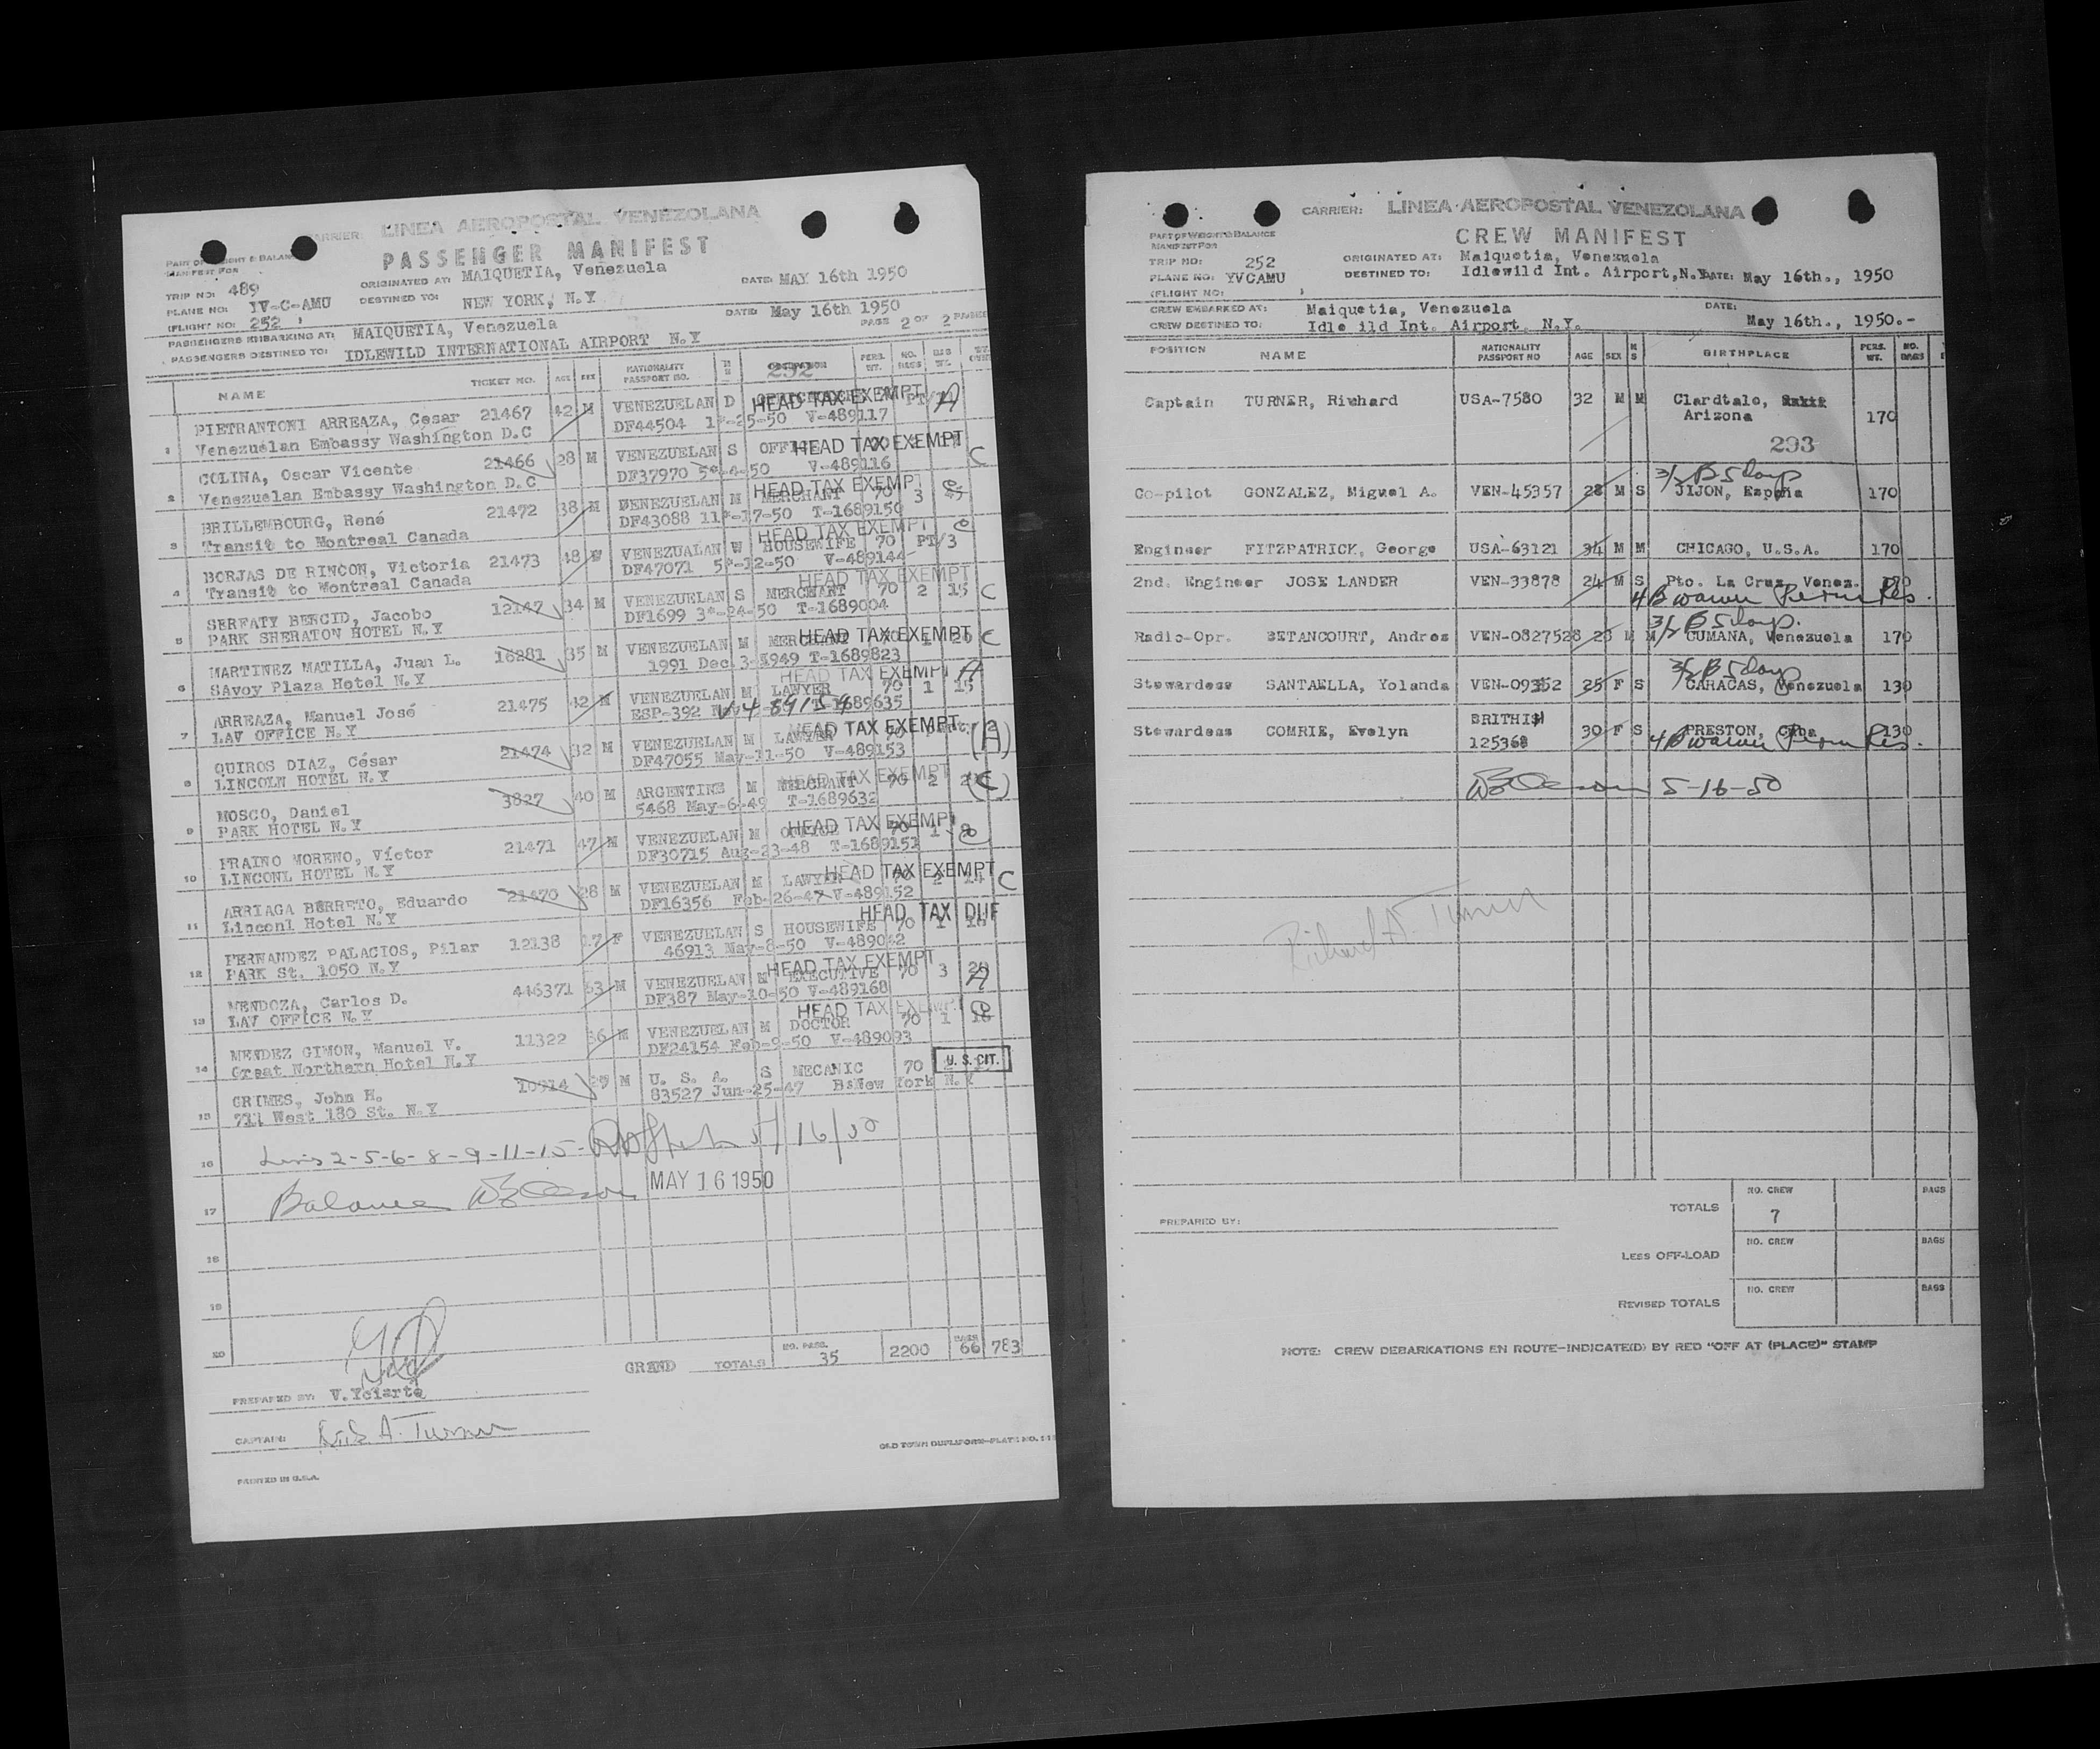 CARRIER: LINEA AEROPOSTAL VENEZOLANA
PASSENGER MANIFEST
PART OF WEIGHT & BALANCE
MANIFEST FOR
TRIP NO: 489
PLANE NO: YV-C-AMU
(FLIGHT NO: 252 )
ORIGINATED AT: MAIQUETIA, Venezuela DATE: MAY 16th 1950
DESTINED TO: NEW YORK, N.Y
PASSENGERS EMBARKING AT: MAIQUETIA, Venezuela DATE: May 16th 1950
PASSENGERS DESTINED TO: IDLEWILD INTERNATIONAL AIRPORT N.Y PAGE 2 OF 2 PAGES
NAME TICKET NO. AGE SEX NATIONALITY PASSPORT NO. OCCUPATION PERS. WT. NO. BAGS BAG WT.
292
1 PIETRANTONI ARREAZA, Cesar 21467 42 M VENEZUELAN D HEAD TAX EXEMPT A
Venezuelan Embassy Washington D.C DF44504 V-489117
2 COLINA, Oscar Vicente 21466 28 M VENEZUELAN S HEAD TAX EXEMPT C
Venezuelan Embassy Washington D.C DF37970 V-489116
3 BRILLEMBOURG, René 21472 38 M VENEZUELAN M MERCHANT 70 3 HEAD TAX EXEMPT
Transit to Montreal Canada DF43088 T-1689150
4 BORJAS DE RINCON, Victoria 21473 48 VENEZUALAN W HOUSEWIFE 70 PT/3 HEAD TAX EXEMPT
Transit to Montreal Canada DF47071 V-489144
5 SERFATY BENCID, Jacobo 12147 34 M VENEZUELAN S MERCHANT 70 2 15 C HEAD TAX EXEMPT
PARK SHERATON HOTEL N.Y DF1699 T-1689004
6 MARTINEZ MATILLA, Juan L. 16281 35 M VENEZUELAN M HEAD TAX EXEMPT C
SAvoy Plaza Hotel N.Y 1991 Dec. 3-1949 T-1689823
7 ARREAZA, Manuel José 21475 42 M VENEZUELAN M LAWYER 70 1 15 HEAD TAX EXEMPT A
LAV OFFICE N.Y ESP-392 T-1689635
8 QUIROS DIAZ, César 21474 32 M VENEZUELAN M LAWYER HEAD TAX EXEMPT (A)
LINCOLN HOTEL N.Y DF47055 May-11-50 V-489153
9 MOSCO, Daniel 3827 40 M ARGENTINE M MERCHANT 70 2 HEAD TAX EXEMPT (C)
PARK HOTEL N.Y 5468 May-6-49 T-1689632
10 FRAINO MORENO, Víctor 21471 47 M VENEZUELAN M HEAD TAX EXEMPT
LINCONL HOTEL N.Y DF30715 Aug-23-48 T-1689151
11 ARRIAGA BERRETO, Eduardo 21470 28 M VENEZUELAN M LAWYER HEAD TAX EXEMPT C
Linconl Hotel N.Y DF16356 Feb-26-47 V-489152
12 FERNANDEZ PALACIOS, Pilar 12138 17 F VENEZUELAN S HOUSEWIFE 70 1 HEAD TAX DUE
PARK St. 1050 N.Y 46913 May-8-50 V-489042
13 MENDOZA, Carlos D. 446371 63 M VENEZUELAN M EXECUTIVE 70 3 HEAD TAX EXEMPT
LAV OFFICE N.Y DF387 May-10-50 V-489168
14 MENDEZ GIMON, Manuel V. 11322 36 M VENEZUELAN M DOCTOR 70 1 HEAD TAX EXEMPT
Great Northern Hotel N.Y DF24154 Feb-9-50 V-489093
15 GRIMES, John H. 10914 29 M U. S. A. S MECANIC 70 U. S. CIT.
711 West 180 St. N.Y 83527 Jun-25-47 New York N.Y
16 Lines 2-5-6-8-9-11-15- 5/16/50
17 Balance MAY 16 1950
18
19
20
GRAND TOTALS NO. PASS. 35 2200 BAGS 66 783
PREPARED BY: V. Yciarte
CAPTAIN: Rich A. Turner
PRINTED IN U.S.A.
CARRIER: LINEA AEROPOSTAL VENEZOLANA
CREW MANIFEST
PART OF WEIGHT & BALANCE
MANIFEST FOR
TRIP NO: 252
PLANE NO: YVCAMU
(FLIGHT NO: )
ORIGINATED AT: Maiquetia, Venezuela
DESTINED TO: Idlewild Int. Airport, N.Y DATE: May 16th., 1950
CREW EMBARKED AT: Maiquetia, Venezuela DATE:
CREW DESTINED TO: Idle ild Int. Airport. N.Y. May 16th., 1950.-
POSITION NAME NATIONALITY PASSPORT NO AGE SEX M S BIRTHPLACE PERS. WT. NO. BAGS
Captain TURNER, Rivhard USA-7580 32 M M Clardtalo,
Arizona 170
293
3/2 B 5 days
Co-pilot GONZALEZ, Miguel A. VEN-45357 28 M S JIJON, España 170
Engineer FITZPATRICK, George USA-63121 34 M M CHICAGO, U.S.A. 170
2nd. Engineer JOSE LANDER VEN-33878 24 M S Pto. La Cruz, Venez. 170
4 B waiver Perm Res.
3/2 B 5 days.
Radio-Opr. BETANCOURT, Andres VEN-0827528 28 M M CUMANA, Venezuela 170
3/2 B 5 days
Stewardess SANTAELLA, Yolanda VEN-09352 25 F S CARACAS, Venezuela 130
Stewardess COMRIE, Evelyn BRITHISH 125368 30 F S PRESTON, Cuba 130
4 B waiver Perm Res.
5-16-50
Richard A. Turner
PREPARED BY:
TOTALS NO. CREW 7 BAGS
LESS OFF-LOAD NO. CREW BAGS
REVISED TOTALS NO. CREW BAGS
NOTE: CREW DEBARKATIONS EN ROUTE-INDICATE(D) BY RED "OFF AT (PLACE)" STAMP